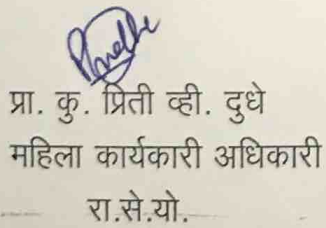 प्रा. कु. प्रिती व्ही. दुधे
महिला कार्यकारी अधिकारी
रा.से.यो.